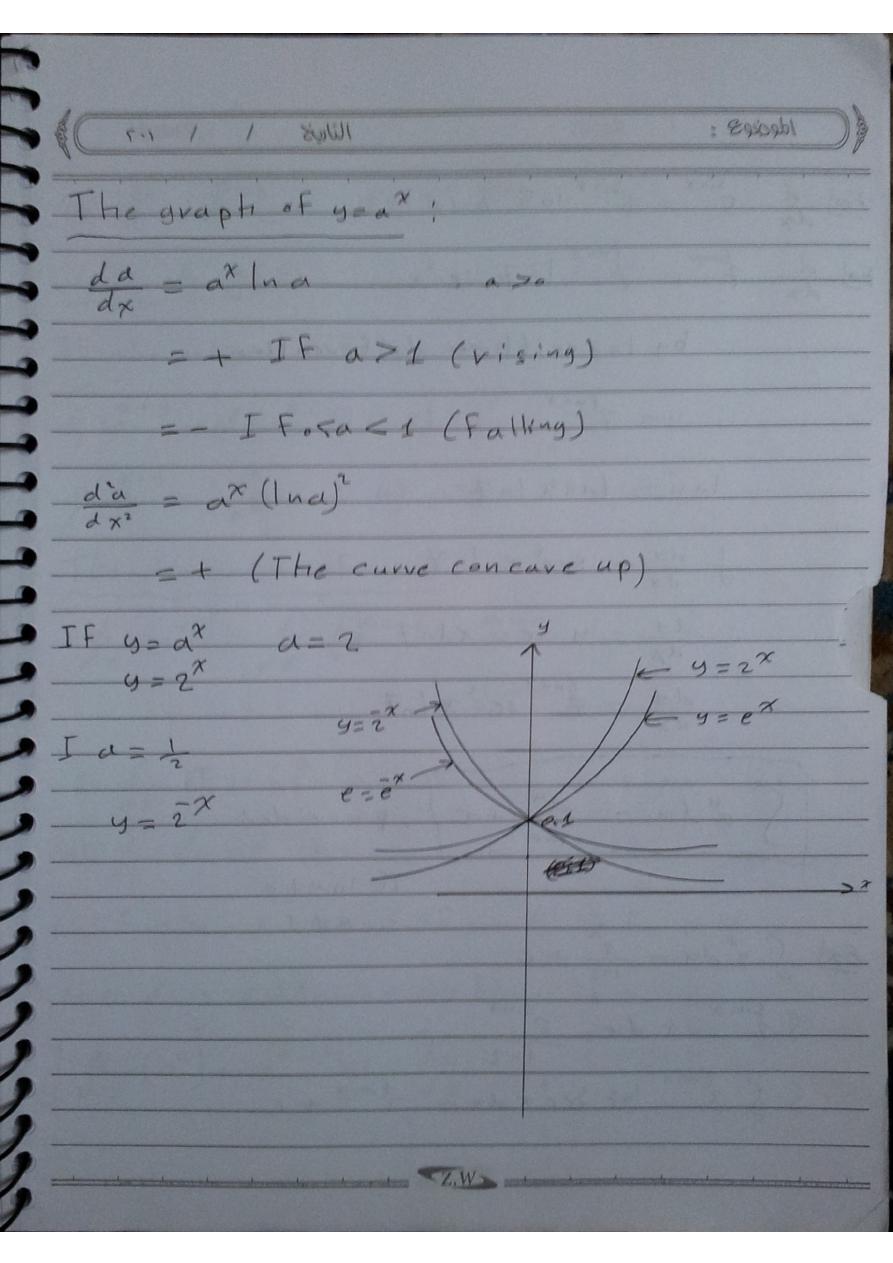 الموضوع : التاريخ / / ٢٠١
The graph of y=a^x :
da/dx = a^x ln a a>0
= + IF a>1 (rising)
= - IF 0<a<1 (falling)
d²a/dx² = a^x (ln a)²
= + (The curve concave up)
IF y=a^x a=2
y=2^x
I a=1/2
y=2^-x
y
y=2^x
y=e^x
y=2^-x
e=e^-x
0,1
x
Z.W